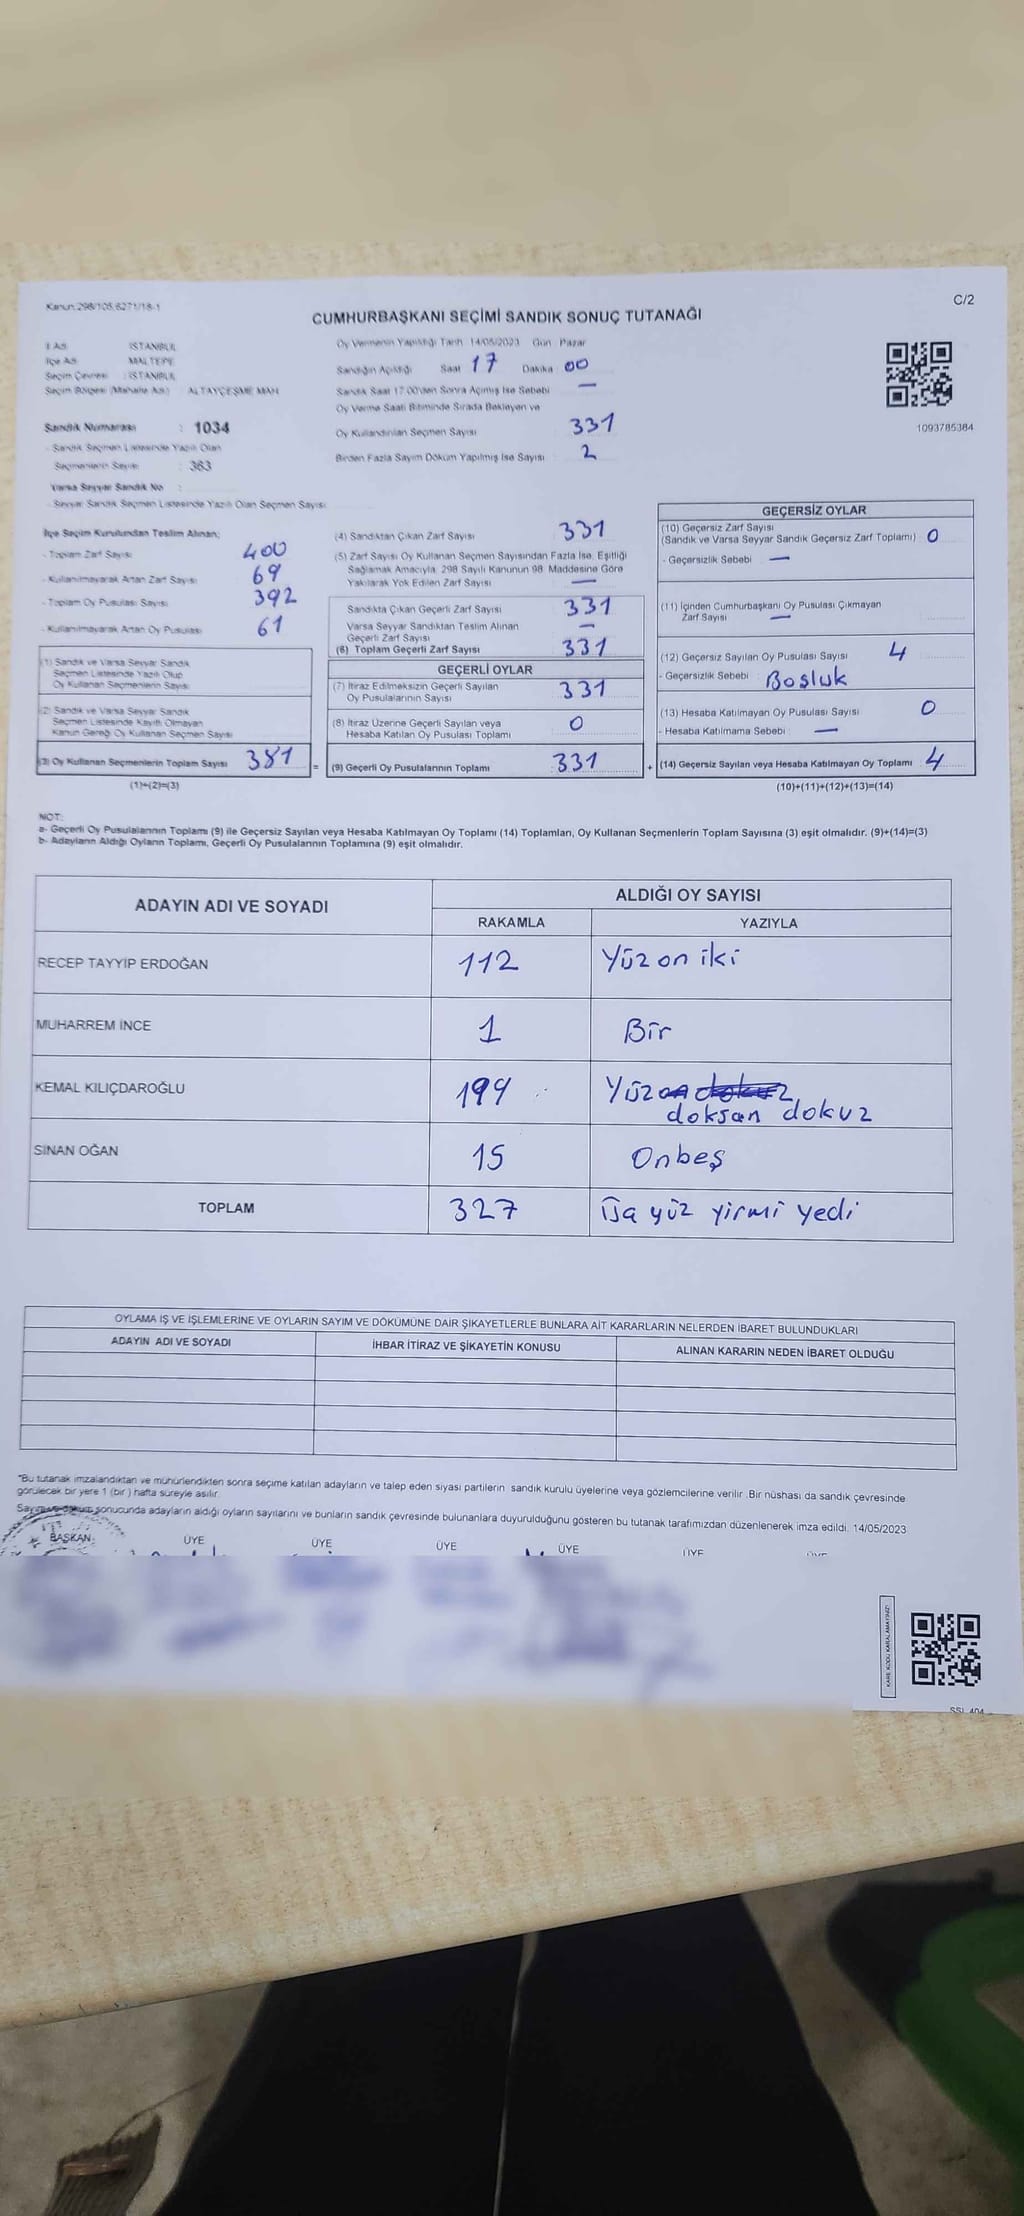 Kanun:298/105,6271/18-1
C/2
CUMHURBAŞKANI SEÇİMİ SANDIK SONUÇ TUTANAĞI
İl Adı : İSTANBUL
İlçe Adı : MALTEPE
Seçim Çevresi : İSTANBUL
Seçim Bölgesi (Mahalle Adı) : ALTAYÇEŞME MAH.
Sandık Numarası : 1034
- Sandık Seçmen Listesinde Yazılı Olan
Seçmenlerin Sayısı : 383
Varsa Seyyar Sandık No :
- Seyyar Sandık Seçmen Listesinde Yazılı Olan Seçmen Sayısı :
Oy Vermenin Yapıldığı Tarih 14/05/2023 Gün : Pazar
Sandığın Açıldığı Saat 17 Dakika 00
Sandık Saat 17.00'den Sonra Açılmış İse Sebebi —
Oy Verme Saati Bitiminde Sırada Bekleyen ve
Oy Kullandırılan Seçmen Sayısı 331
Birden Fazla Sayım Döküm Yapılmış İse Sayısı 2
1093785384
İlçe Seçim Kurulundan Teslim Alınan;
- Toplam Zarf Sayısı 400
- Kullanılmayarak Artan Zarf Sayısı 69
- Toplam Oy Pusulası Sayısı 392
- Kullanılmayarak Artan Oy Pusulası 61
(1) Sandık ve Varsa Seyyar Sandık
Seçmen Listesinde Yazılı Olup
Oy Kullanan Seçmenlerin Sayısı
(2) Sandık ve Varsa Seyyar Sandık
Seçmen Listesinde Kayıtlı Olmayan
Kanun Gereği Oy Kullanan Seçmen Sayısı
(3) Oy Kullanan Seçmenlerin Toplam Sayısı 381
(1)+(2)=(3)
=
(4) Sandıktan Çıkan Zarf Sayısı 331
(5) Zarf Sayısı Oy Kullanan Seçmen Sayısından Fazla İse, Eşitliği
Sağlamak Amacıyla, 298 Sayılı Kanunun 98. Maddesine Göre
Yakılarak Yok Edilen Zarf Sayısı —
Sandıkta Çıkan Geçerli Zarf Sayısı 331
Varsa Seyyar Sandıktan Teslim Alınan
Geçerli Zarf Sayısı —
(6) Toplam Geçerli Zarf Sayısı 331
GEÇERLİ OYLAR
(7) İtiraz Edilmeksizin Geçerli Sayılan
Oy Pusulalarının Sayısı 331
(8) İtiraz Üzerine Geçerli Sayılan veya
Hesaba Katılan Oy Pusulası Toplamı 0
(9) Geçerli Oy Pusulalarının Toplamı : 331
+
GEÇERSİZ OYLAR
(10) Geçersiz Zarf Sayısı
(Sandık ve Varsa Seyyar Sandık Geçersiz Zarf Toplamı) 0
- Geçersizlik Sebebi : —
(11) İçinden Cumhurbaşkanı Oy Pusulası Çıkmayan
Zarf Sayısı —
(12) Geçersiz Sayılan Oy Pusulası Sayısı 4
- Geçersizlik Sebebi : Boşluk
(13) Hesaba Katılmayan Oy Pusulası Sayısı 0
- Hesaba Katılmama Sebebi : —
(14) Geçersiz Sayılan veya Hesaba Katılmayan Oy Toplamı 4
(10)+(11)+(12)+(13)=(14)
NOT:
a- Geçerli Oy Pusulalarının Toplamı (9) ile Geçersiz Sayılan veya Hesaba Katılmayan Oy Toplamı (14) Toplamları, Oy Kullanan Seçmenlerin Toplam Sayısına (3) eşit olmalıdır. (9)+(14)=(3)
b- Adayların Aldığı Oyların Toplamı, Geçerli Oy Pusulalarının Toplamına (9) eşit olmalıdır.
ADAYIN ADI VE SOYADI
ALDIĞI OY SAYISI
RAKAMLA YAZIYLA
RECEP TAYYİP ERDOĞAN 112 Yüz on iki
MUHARREM İNCE 1 Bir
KEMAL KILIÇDAROĞLU 199 Yüz on dokuz
doksan dokuz
SİNAN OĞAN 15 Onbeş
TOPLAM 327 yüz yirmi yedi
OYLAMA İŞ VE İŞLEMLERİNE VE OYLARIN SAYIM VE DÖKÜMÜNE DAİR ŞİKAYETLERLE BUNLARA AİT KARARLARIN NELERDEN İBARET BULUNDUKLARI
ADAYIN ADI VE SOYADI
İHBAR İTİRAZ VE ŞİKAYETİN KONUSU
ALINAN KARARIN NEDEN İBARET OLDUĞU
*Bu tutanak imzalandıktan ve mühürlendikten sonra seçime katılan adayların ve talep eden siyasi partilerin sandık kurulu üyelerine veya gözlemcilerine verilir .Bir nüshası da sandık çevresinde
görülecek bir yere 1 (bir ) hafta süreyle asılır.
Sayım ve döküm sonucunda adayların aldığı oyların sayılarını ve bunların sandık çevresinde bulunanlara duyurulduğunu gösteren bu tutanak tarafımızdan düzenlenerek imza edildi. 14/05/2023
BAŞKAN ÜYE ÜYE ÜYE ÜYE ÜYE ÜYE
KARE KODU KARALAMAYINIZ!
SSL 404